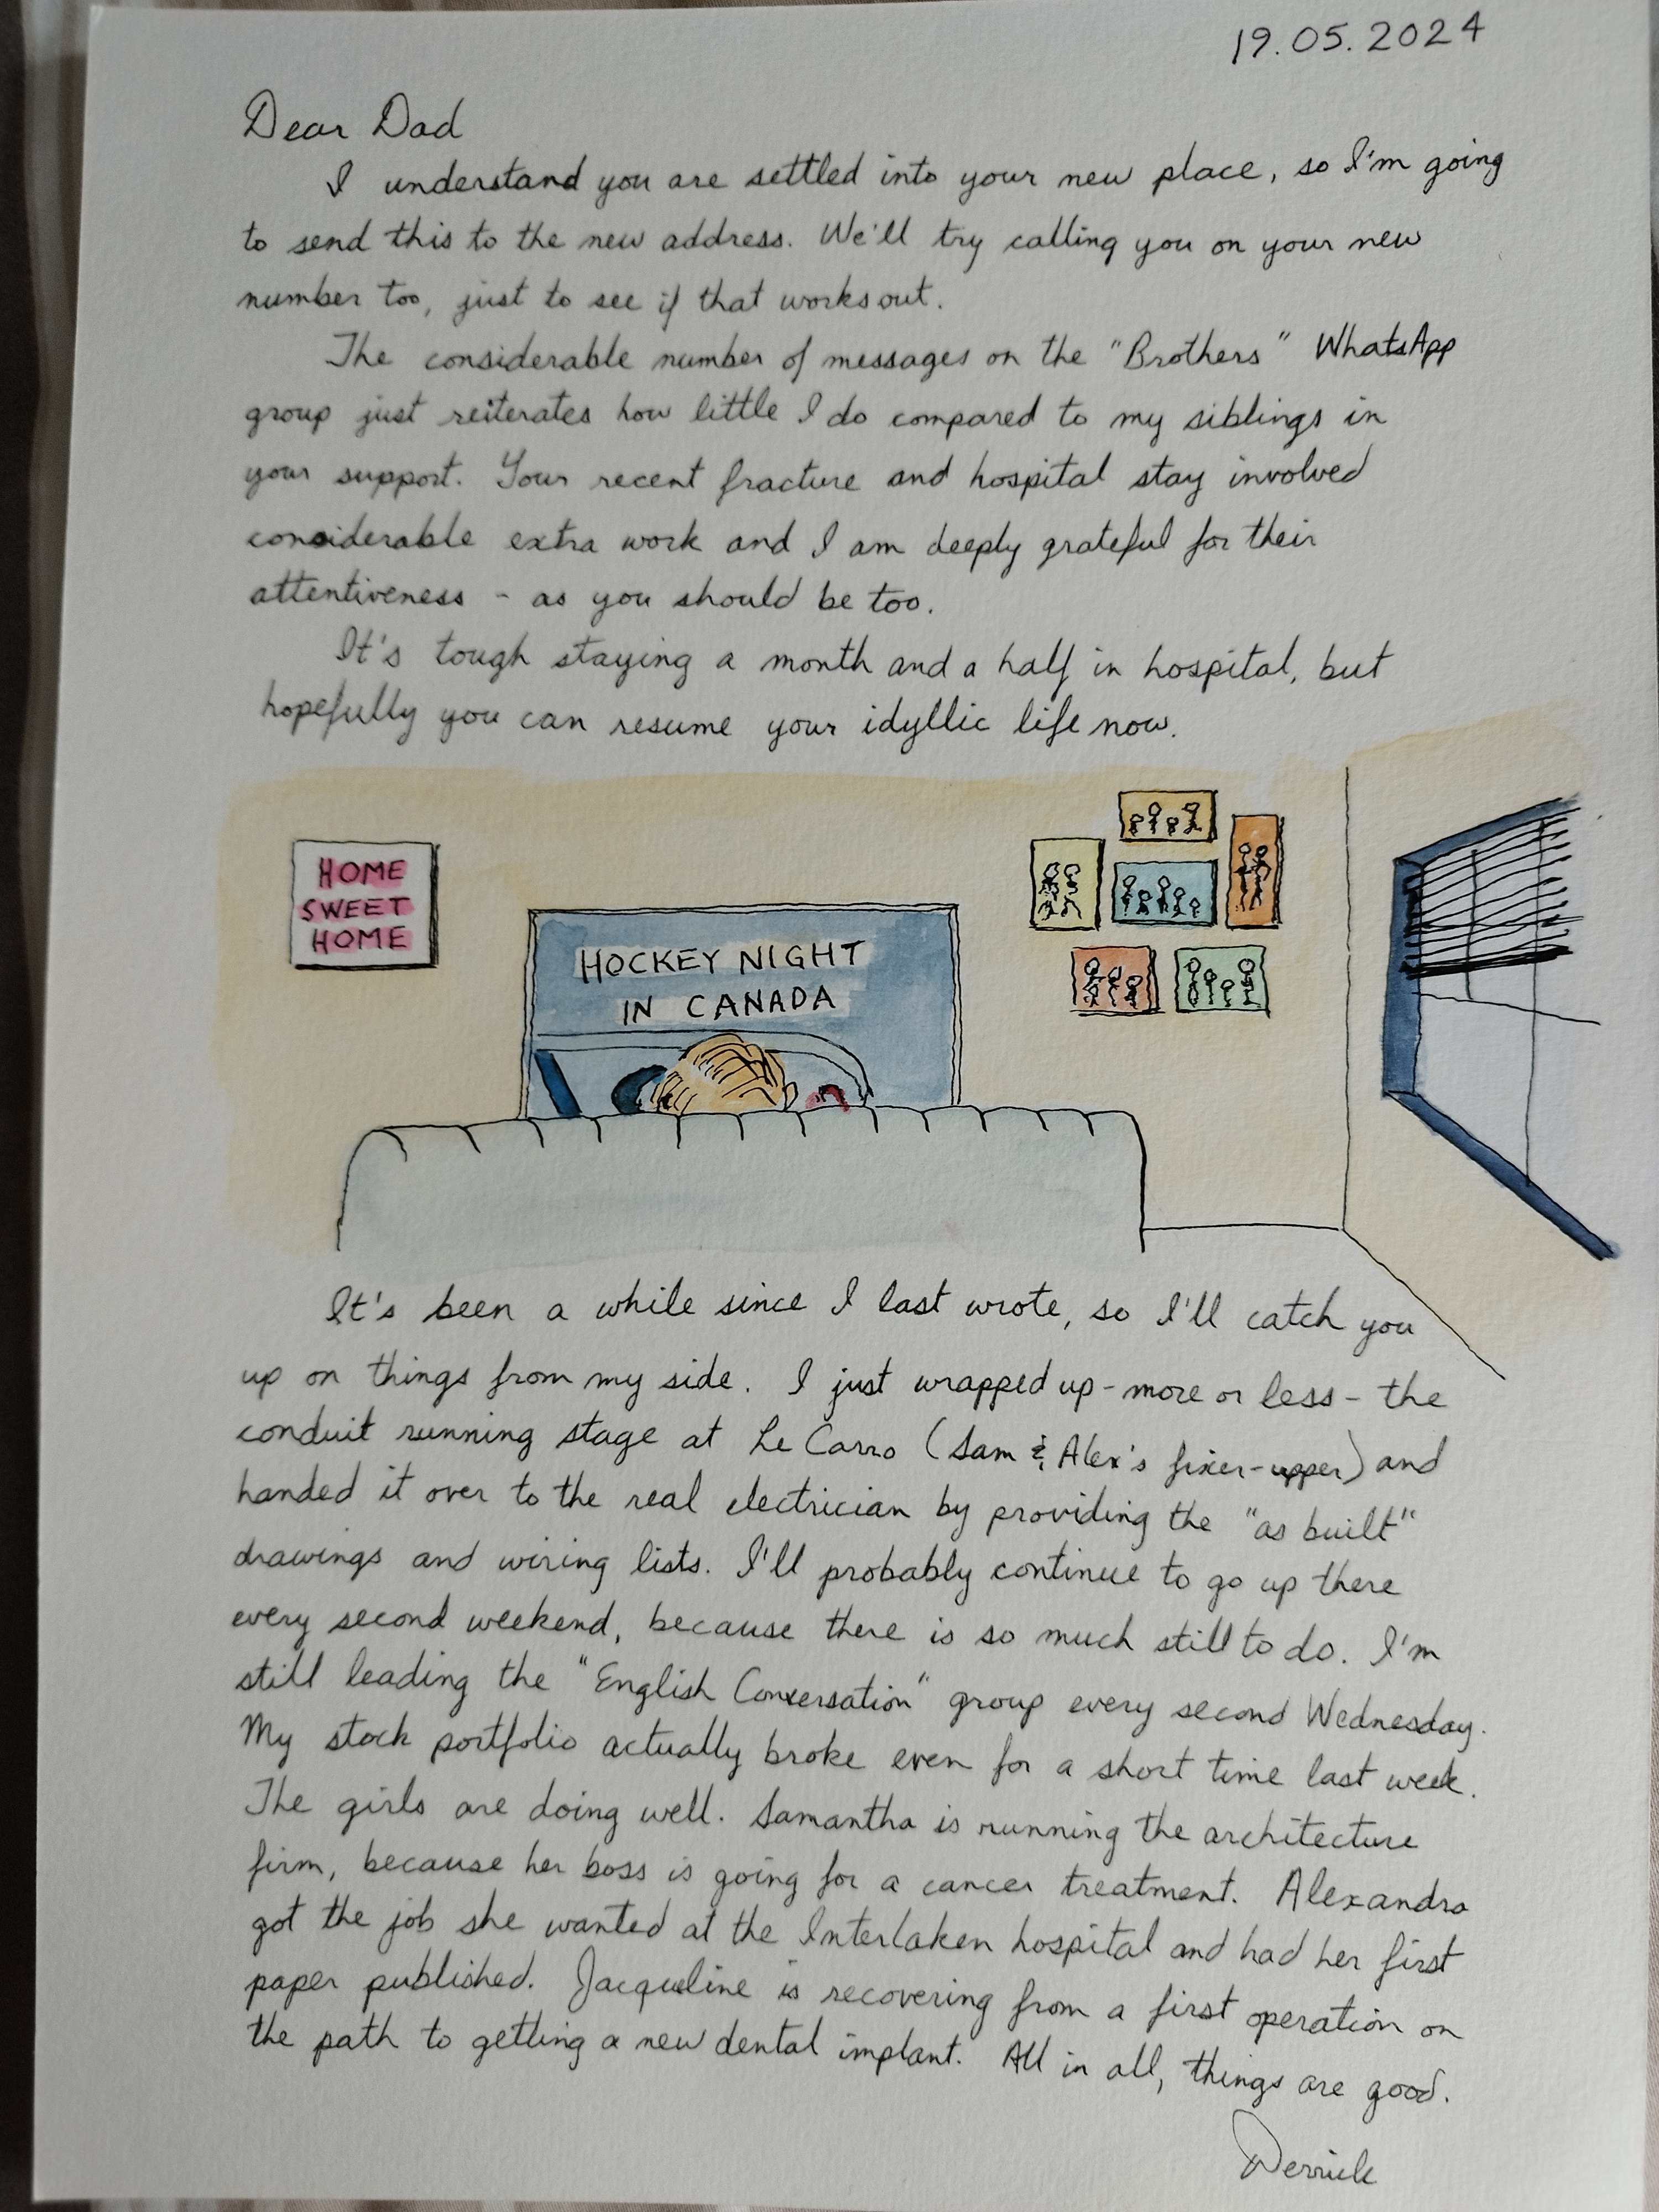 19.05.2024
Dear Dad
I understand you are settled into your new place, so I'm going
to send this to the new address. We'll try calling you on your new
number too, just to see if that works out.
The considerable number of messages on the "Brothers" WhatsApp
group just reiterates how little I do compared to my siblings in
your support. Your recent fracture and hospital stay involved
considerable extra work and I am deeply grateful for their
attentiveness - as you should be too.
It's tough staying a month and a half in hospital, but
hopefully you can resume your idyllic life now.
HOME
SWEET
HOME
HOCKEY NIGHT
IN CANADA
It's been a while since I last wrote, so I'll catch you
up on things from my side. I just wrapped up - more or less - the
conduit running stage at Le Carro (Sam & Alex's fixer-upper) and
handed it over to the real electrician by providing the "as built"
drawings and wiring lists. I'll probably continue to go up there
every second weekend, because there is so much still to do. I'm
still leading the "English Conversation" group every second Wednesday.
My stock portfolio actually broke even for a short time last week.
The girls are doing well. Samantha is running the architecture
firm, because her boss is going for a cancer treatment. Alexandra
got the job she wanted at the Interlaken hospital and had her first
paper published. Jacqueline is recovering from a first operation on
the path to getting a new dental implant. All in all, things are good.
Derrick